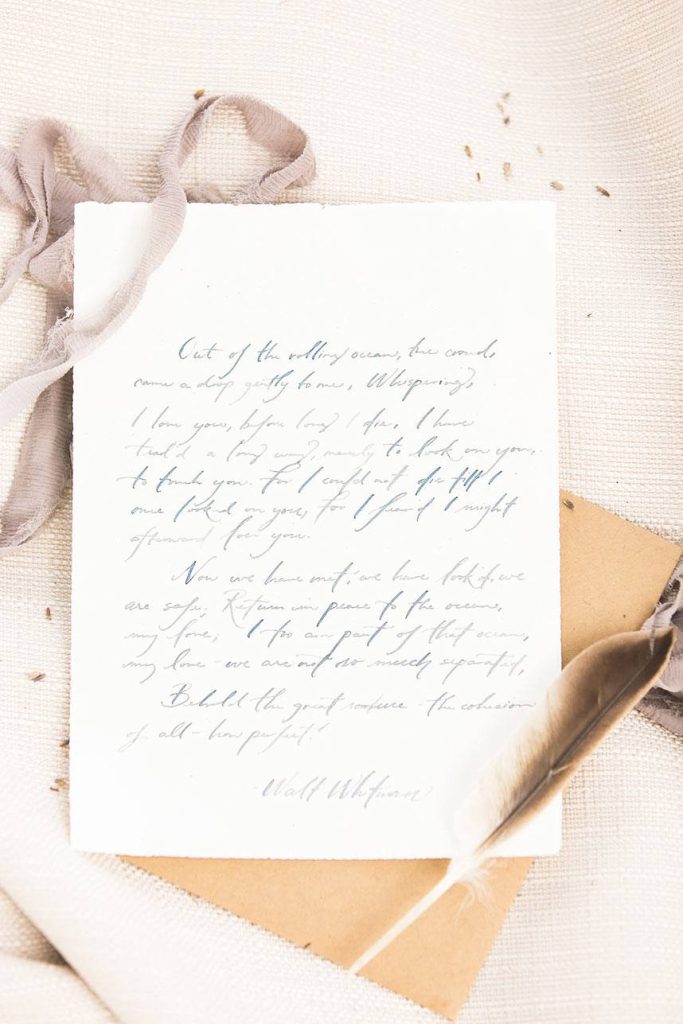 Out of the rolling ocean, the crowd,
came a drop gently to me, Whispering,
I love you, before long I die, I have
travl'd a long way, merely to look on you,
to touch you. For I could not die till I
once look'd on you, For I fear'd I might
afterward lose you.
Now we have met, we have look'd, we
are safe; Return in peace to the ocean,
my love; I too am part of that ocean,
my love - we are not so much separated,
Behold the great - the cohesion
of all - how perfect!
Walt Whitman